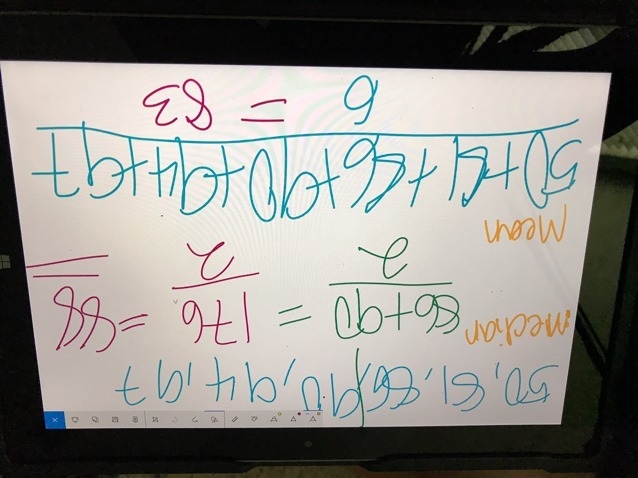 50, 81, 86, 90, 94, 97
Median: 86+90 / 2 = 176 / 2 = 88
Mean
50+81+86+90+94+97
6 = 83